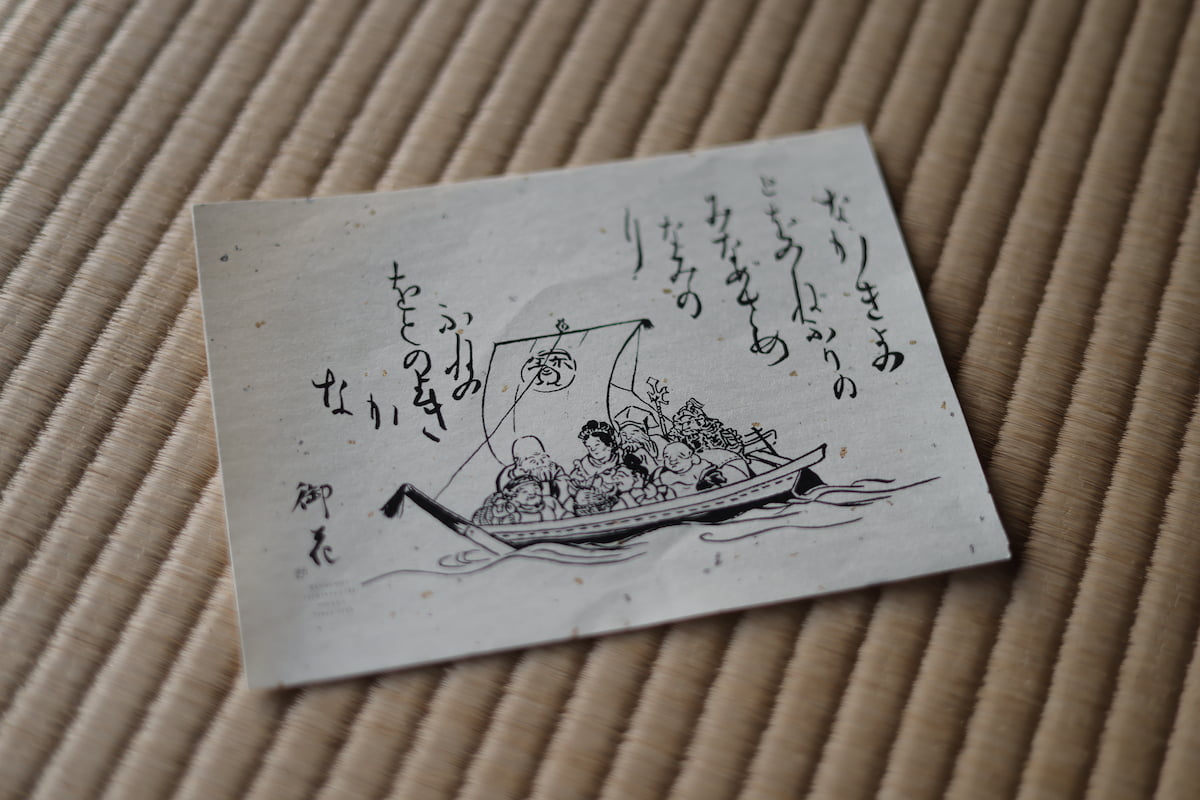 なかきよの
とおのねふりの
みなめさめ
なみの
り
ふねの
をとのよき
か
な
御花